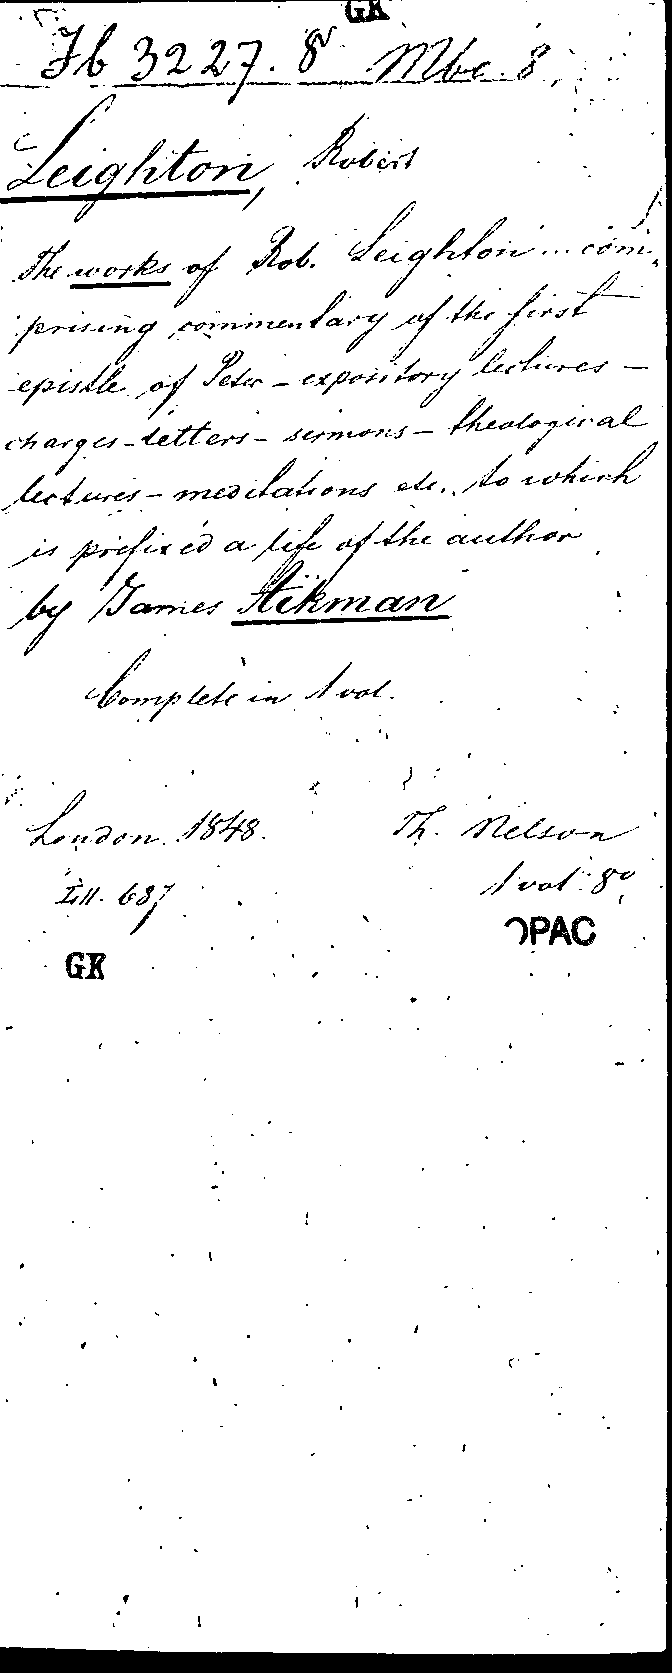 GK
Fb 3227. 8° Mbc. 8.
Leighton, Robert
The works of Rob. Leighton ... com-
prising commentary of the first
epistle of Peter - expository lectures -
charges - letters - sermons - theological
lectures - meditations etc. to which
is prefixed a life of the author
by James Aikman
Complete in 1 vol.
London. 1848. Th. Nelson
LII. 687 1 vol. 8°
OPAC
GK